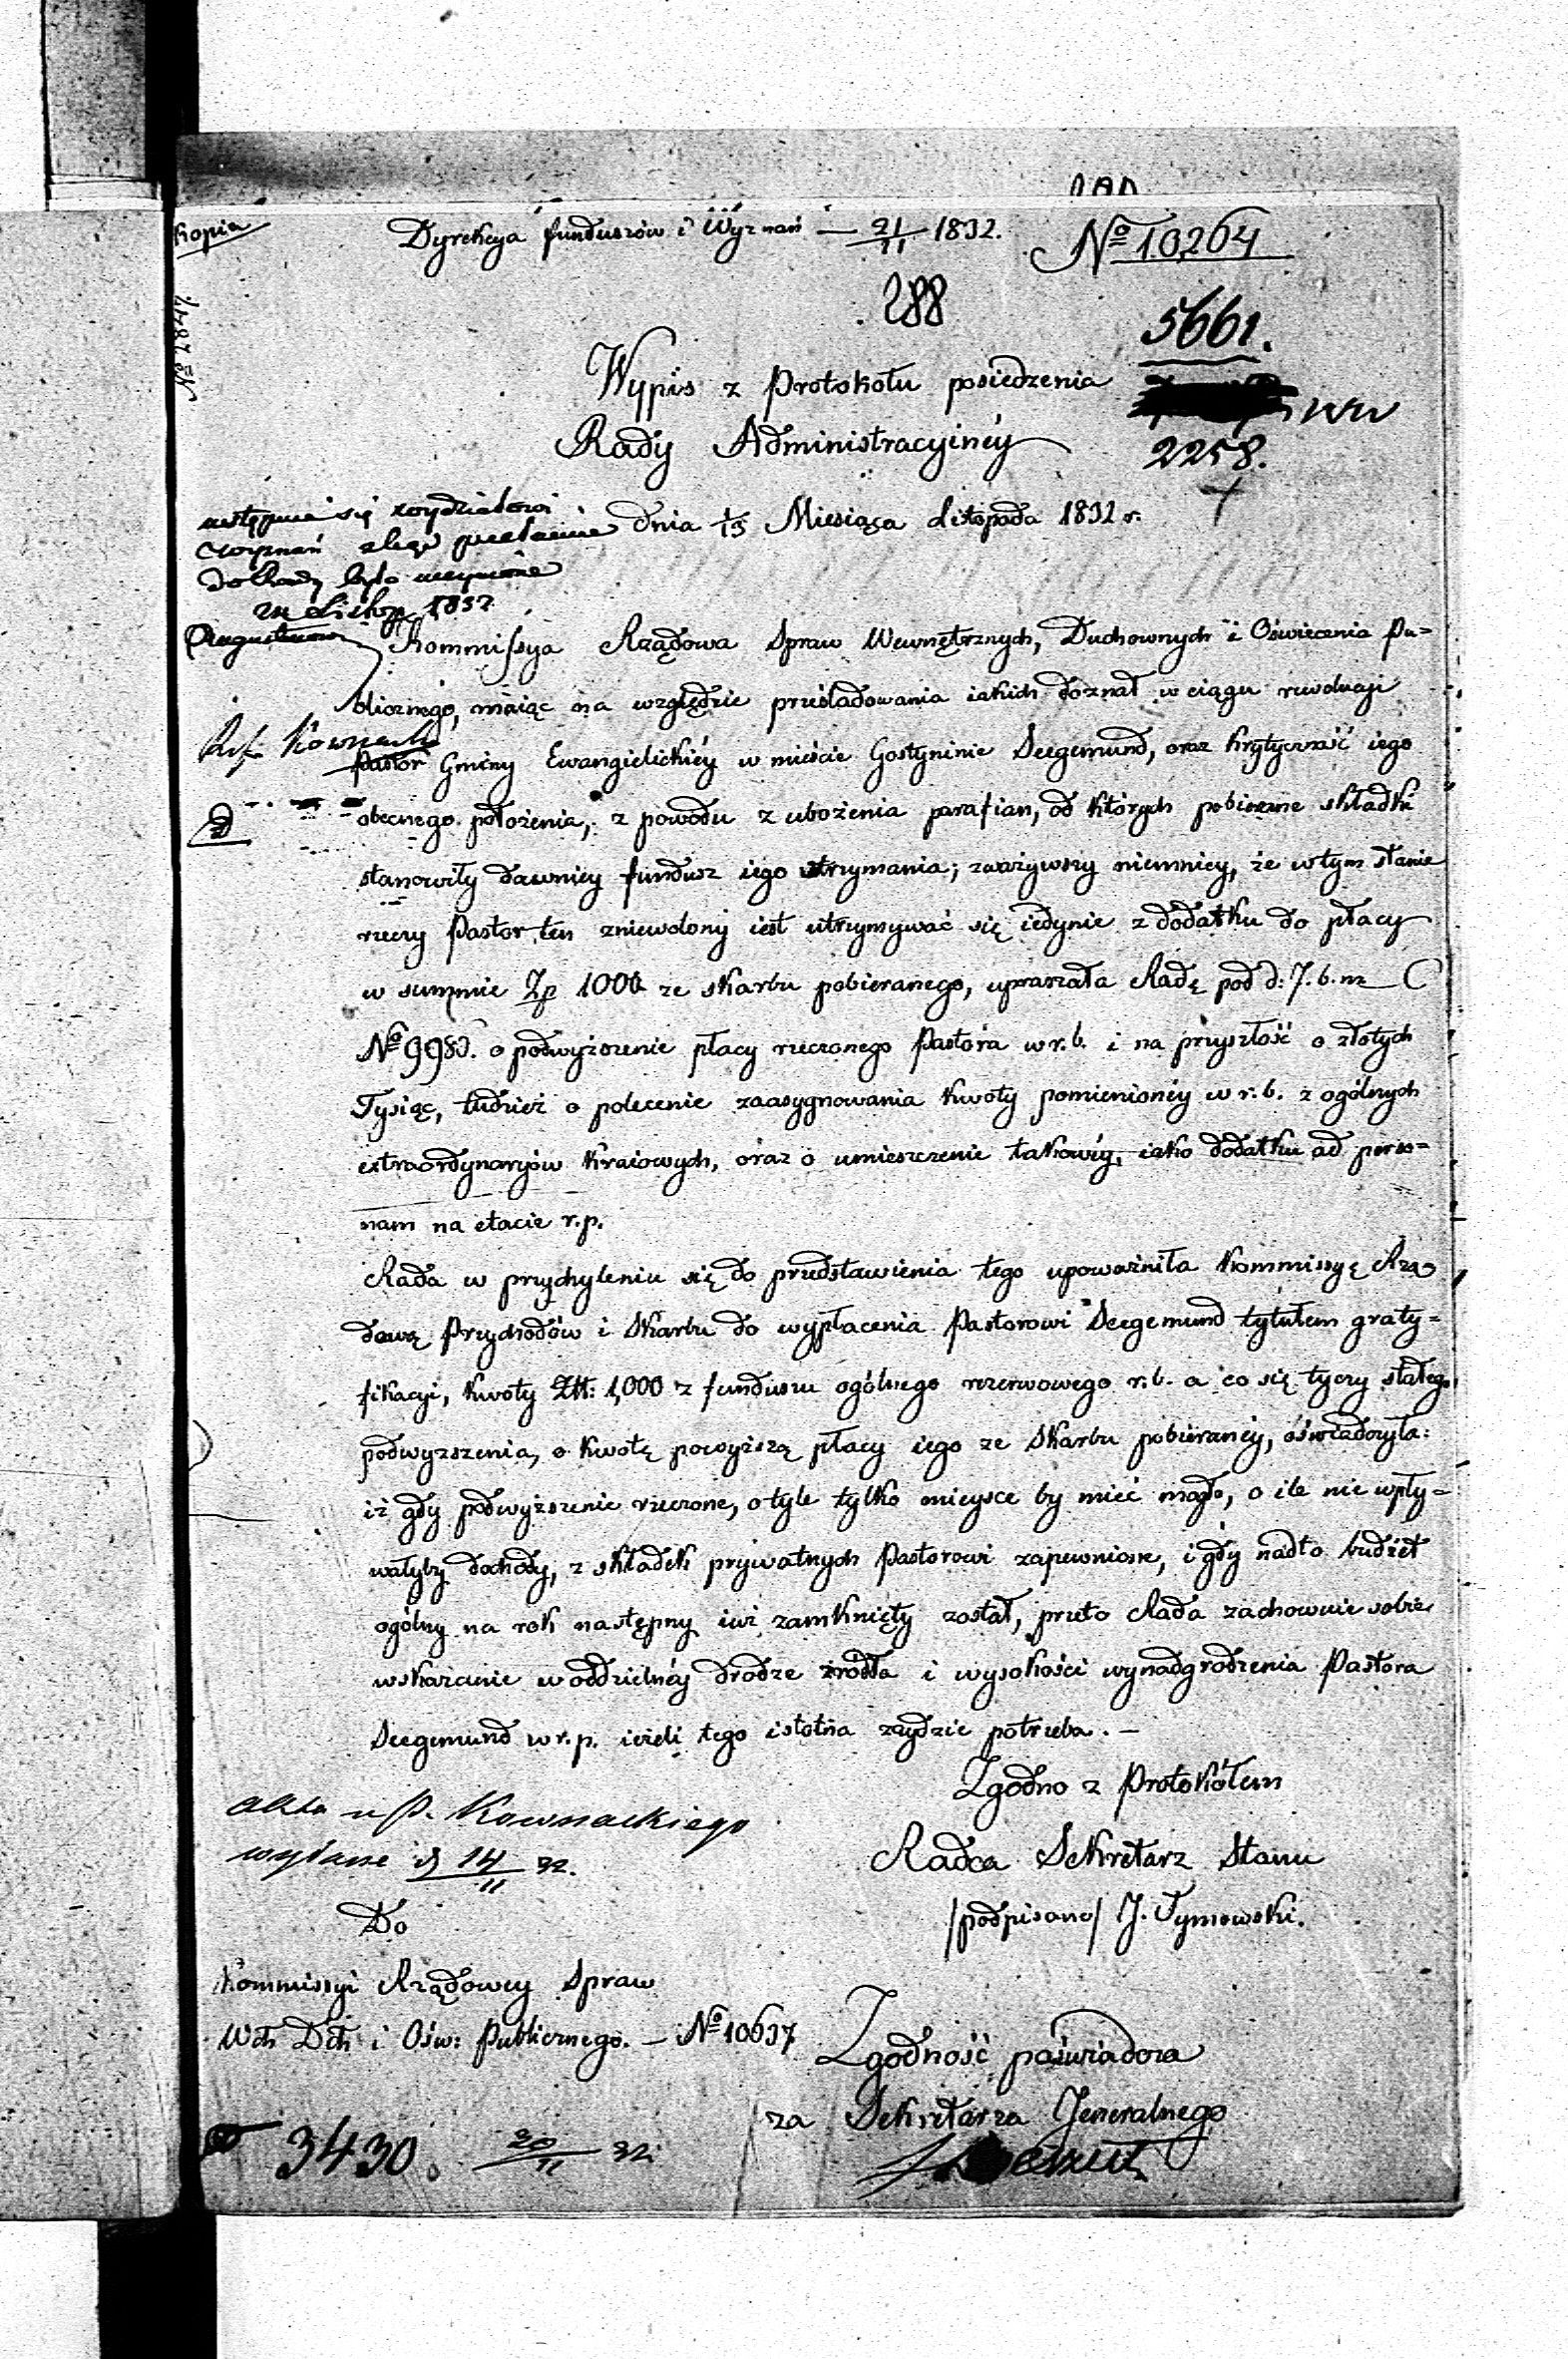 Kopia
Dyrekcya funduszów i Wyznań — 21/11 — 1832.
Nº 10,264
288
5661.
2258.
Wypis z Protokołu posiedzenia
Rady Administracyinéy
dnia 1/13 Miesiąca Listopada 1832 r.
ustępuie się wydziałowi
wyznań zkąd przedstawienie
do Rady było uczynione
Listop. 1832
Kommissya Rządowa Spraw Wewnętrznych, Duchownych i Oświecenia Pu=
blicznego, maiąc na względzie prześladowania iakich doznał w ciągu rewolucyi
Pastor Gminy Ewangielickiéy w mieście Gostyninie Seegemund, oraz krytyczność iego
obecnego położenia, z powodu zubożenia parafian, od których pobierane składki
stanowiły dawniey fundusz iego utrzymania; zważywszy niemniey, że w tym stanie
rzeczy Pastor ten zniewolony iest utrzymywać się iedynie z dodatku do płacy
w summie Zp 1000 ze skarbu pobieranego, upraszała Radę pod d: 7. b. m
Nº 9983. o podwyższenie płacy rzeczonego Pastora w r. b. i na przyszłość o złotych
Tysiąc, tudzież o polecenie zaasygnowania kwoty pomienionéy w r. b. z ogólnych
extraordynaryów kraiowych, oraz o umieszczenie takowéy, iako dodatku ad perso=
nam na etacie r. p.
Rada w przychyleniu się do przedstawienia tego upoważniła Kommissyę Rzą
dową Przychodów i Skarbu do wypłacenia Pastorowi Seegemund tytułem graty=
fikacyi, kwoty Złł: 1,000 z funduszu ogólnego rezerwowego r. b. a co się tyczy stałego
podwyzszenia, o kwotę powyższą płacy iego ze Skarbu pobieranéy, oświadczyła:
iż gdy podwyższenie rzeczone, o tyle tylko mieysce by mieć mogło, o ile nie wpły=
wałyby dochody, z składek prywatnych Pastorowi zapewnione, i gdy nadto budżet
ogólny na rok następny iuż zamknięty został, przeto Rada zachowuie sobie
wskazanie w oddzielnéy drodze źródła i wysokości wynadgrodzenia Pastora
Seegemund w r. p. ieżeli tego istotna zaydzie potrzeba. —
Zgodno z Protokółem
Radca Sekretarz Stanu
/podpisano/ J. Tymowski.
akta u P. Kownackiego
wydane d 14/11 32.
Do
Kommissyi Rządowey Spraw
Wch Dch i Ośw: Publicznego. — Nº 10637
Zgodność poświadcza
za Sekretarza Jeneralnego
3430. 20/11 32.